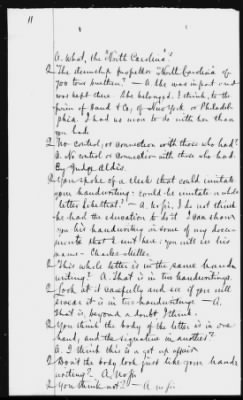 11
A. What, the "North Carolina"?
Q The steamship propeller "North Carolina" of
700 tons burthen? — A. She was in port and
was kept there. She belonged, I think, to the
firm of & Co, of New York or Philadel-
phia. I had no more to do with her than
you had.
Q No control, or connection with those who had?
A. No control or connection with those who had.
By Judge Aldis.
Q You spoke of a clerk that could imitate
your handwriting - could he imitate a whole
letter like that? — A. no sir, I do not think
he had the education to do it. I can show
you his handwriting in some of my docu-
ments that I sent here: you will see his
name - Charles
Q This whole letter is in the same hand
writing? A. That is in two handwritings.
Q Look at it carefully and see if you will
swear it is in two handwritings — A.
That is, beyond a doubt I think.
Q You think the body of the letter is in one
hand, and the signature in another?
A. I think this is a got up affair
Q Don't the body look just like your hand
writing? A. No sir
Q You think not? — A no sir.